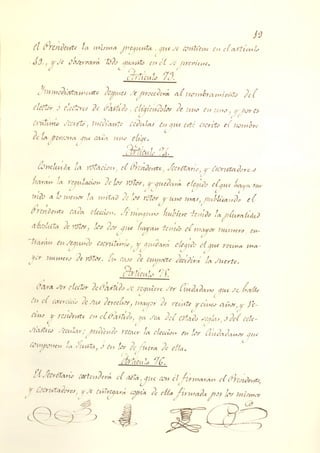 el Presidente la misma pregunta, que se contiene en el articulo
49., y se observará todo quanto en él se previene.
Articulo 73.
Inmediatamente despues se procederá al nombramiento del
elector ó electores de Partido, eligiendolos de uno en uno, y por es-
crutinio secreto, mediante cedulas en que esté escrito el nombre
de la persona que cada uno elije.
Articulo 74.
Concluida la votacion, el Presidente, Secretario, y Escrutadores
harán la regulacion de los votos, y quedará elegido el que haya reu-
nido á lo menos la mitad de los votos y uno mas, publicando el
Presidente cada eleccion. Si ninguno hubiere tenido la pluralidad
absoluta de votos, los dos que hayan tenido el mayor numero en-
trarán en segundo escrutinio, y quedará elegido el que reuna ma-
yor numero de votos. En caso de empate decidirá la suerte.
Articulo 75.
Para ser elector de Partido se requiere ser Ciudadano que se halle
en el exercicio de sus derechos, mayor de veinte y cinco años, y Ve-
cino y residente en el Partido, ya sea del estado seglar, ó del ecle-
siastico secular; pudiendo recaer la eleccion en los Ciudadanos que
componen la Junta, ó en los de fuera de ella.
Articulo 76.
El Secretario extenderá el acta, que con él firmarán el Presidente,
y Escrutadores, y se entregará copia de ella firmada por los mismos